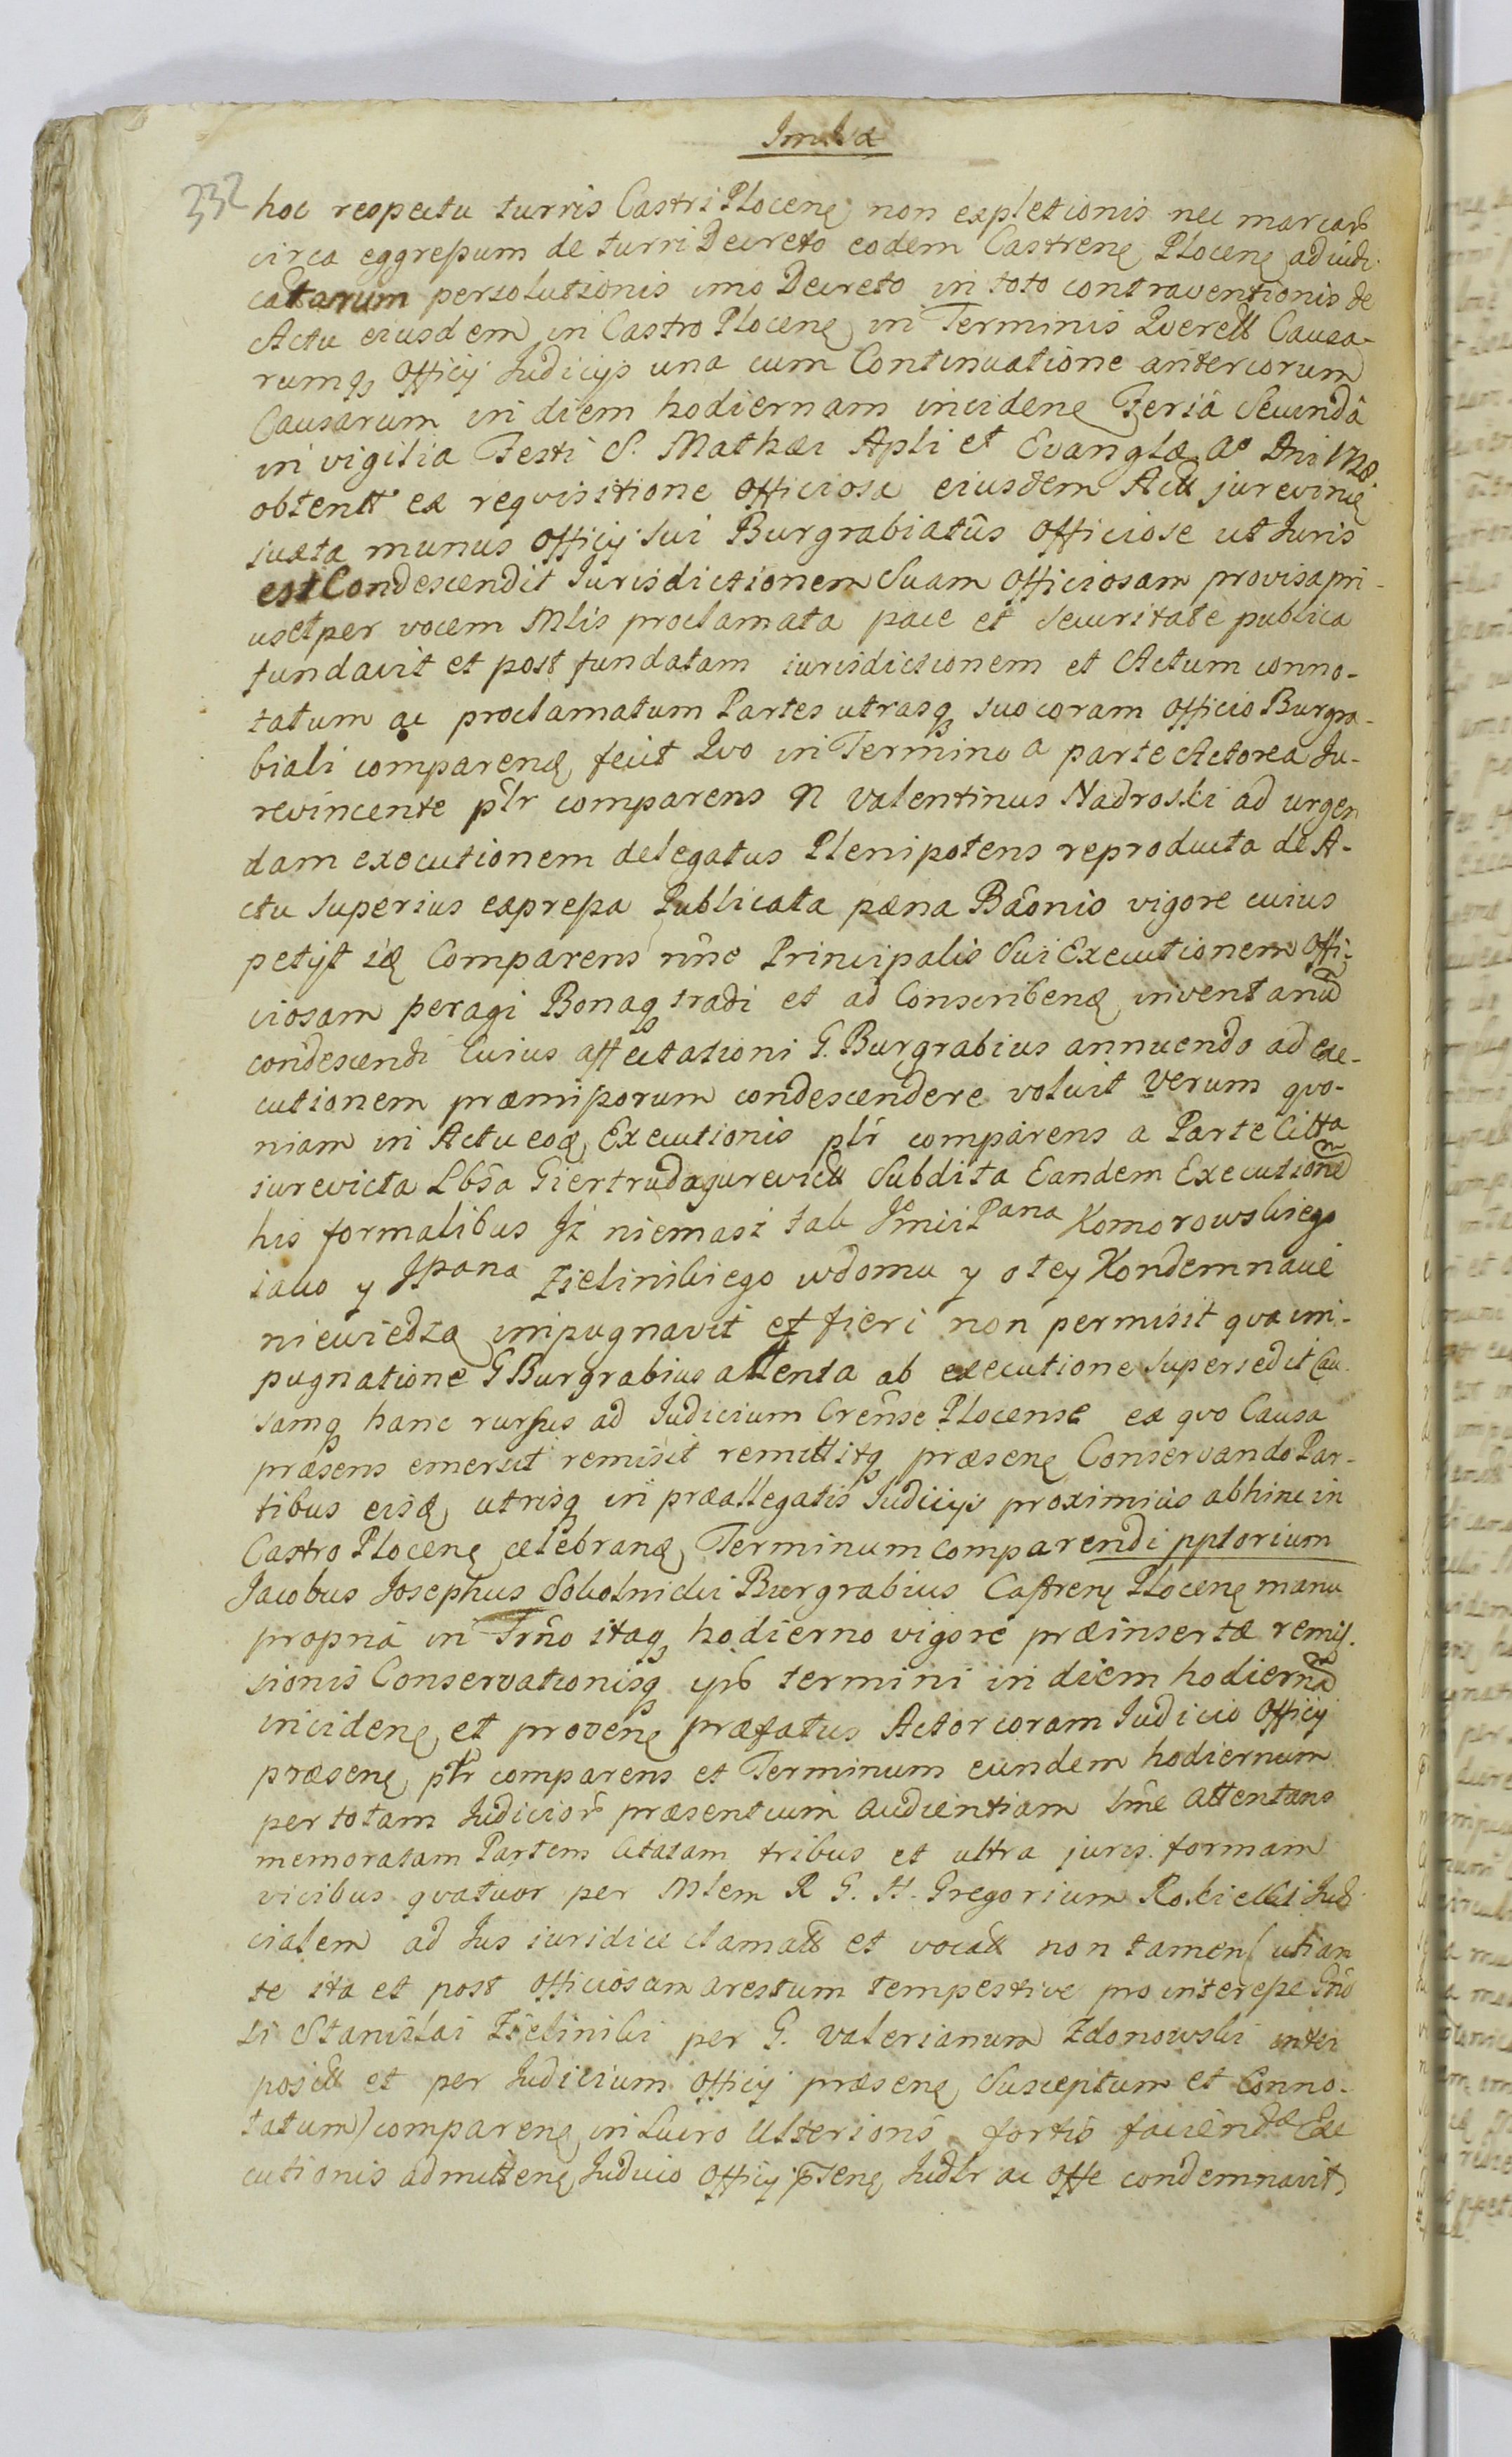 332
hoc respectu turris Castri Plocenę non expletionis nec marcarũ
circa eggressum de turri Decreto eodem Castrenę Plocenę adiudi-
catarum persolutionis imo Decreto in toto contraventionis de
Actu eiusdem in Castro Plocenę in Terminis Querell Causa-
rumq Officij Judicijs una cum Continuatione anteriorum
Causarum in diem hodiernam incidenę Feriâ Secundâ
in vigilia Festi S. Mathæi Apli et Evanglæ Aº Dni
obtentt ex requisitione Officiosa eiusdem Actt jurevincę
iuxta munus Officij Sui Burgrabiatûs Officiose ut Juris
est Condescendit Jurisdictionem Suam Officiosam provisa pri-
us et per vocem Mlis proclamata pace et Securitate publica
fundavit et post fundatam iurisdictionem et Actum conno-
tatum ac proclamatum Partes utrasq suo coram Officio Burgra-
biali comparenđ fecit Quo in Termino a parte Actorea Ju-
revincente plr comparens N Valentinus Nadroski ad urgen
dam executionem delegatus Plenipotens reproducta de A-
ctu superius expressa Publicata pæna Bãonis vigore cuius
petijt idę Comparens nñe Principalis Sui Executionem Offi-
ciosam peragi Bonaq tradi et ad Conscribenđ inventariũ
condescendi Cuius affectationi G. Burgrabius annuendo ad exe-
cutionem præmissorum condescendere voluit Verum quo-
niam in Actu eođ Executionis plr comparens a Parte Citta
iurevicta Lbsa Giertruda jurevictt Subdita Eandem Executionẽ
his formalibus Iż niemasz tak Jmci Pana Komorowskiego
iako y JPana Zielinskiego wdomu y otey Kondemnacie
niewiedzą impugnavit et fieri non permisit qua im-
pugnatione G Burgrabius attenta ab executione Supersedit Cau-
samq hanc rursus ad Judicium Creñse Plocense ex quo Causa
præsens emersit remisit remittitq præsenę Conservando Par-
tibus eisđ utrisq in præallegatis Judicijs proximius abhinc in
Castro Plocenę celebranđ Terminum comparendi pptorium
Jacobus Josephus Sokolnicki Burgrabius Castrenę Plocenę manu
propriâ in Trño itaq hodierno vigore præinsertæ remis-
sionis Conservationisq ips termini in diem hodiernã
incidenę et provenę præfatus Actor coram Judicio Officij
præsenę plr comparens et Terminum eundem hodiernum
per totam Judiciorũ præsentium audientiam lme attentans
memoratam Partem Citatam tribus et ultra juris formam
vicibus quatuor per Mlem R G. H. Gregorium Rokicki Judi
cialem ad Jus iuridice clamatt et vocatt non tamen (uti an
te ita et post Officiosam arestum tempestive pro interesse Gño
si Stanislai Zielinski per G. Valerianum Zdonowski inter
positt et per Judicium Officij præsenę Susceptum et Conno-
tatum) comparenę in Lucro Ulterioris fortis faciendæ Exe
cutionis admittenę Judicio Officij prsenę Judlr ac Offe condemnavit